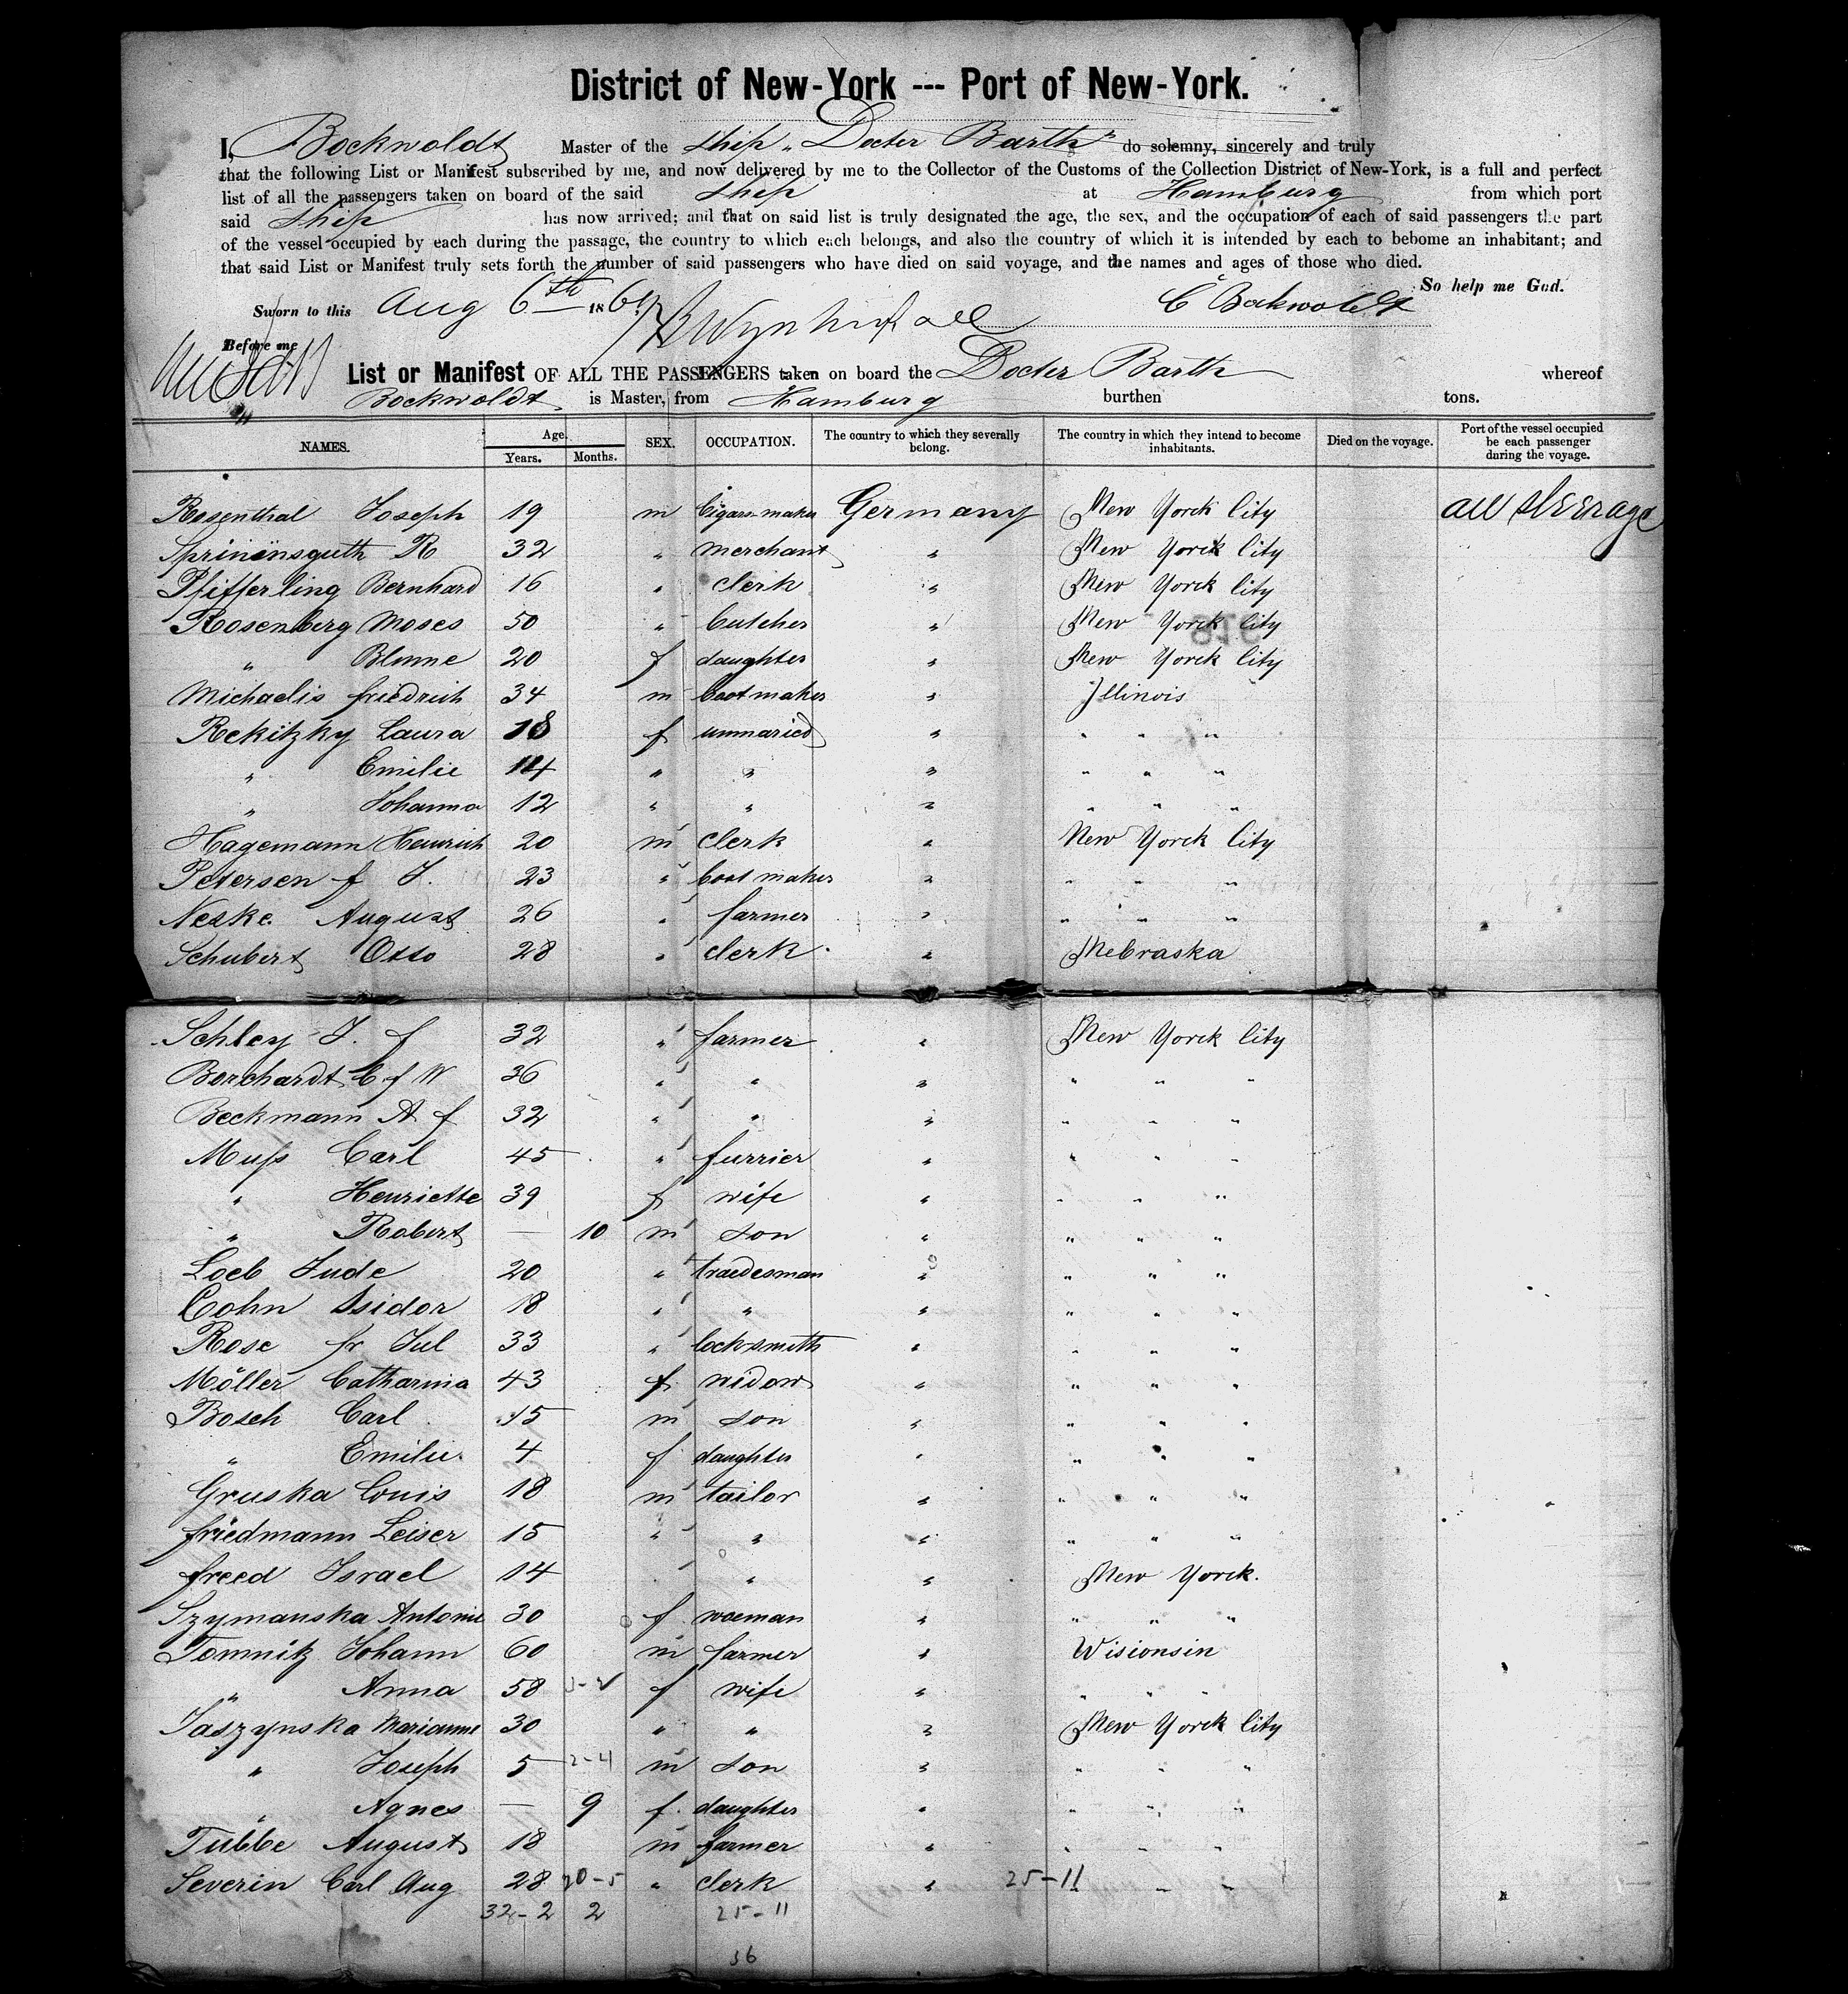 District of New-York --- Port of New-York.
I, Bockwoldt Master of the ship „ Docter Barth " do solemny, sincerely and truly
that the following List or Manifest subscribed by me, and now delivered by me to the Collector of the Customs of the Collection District of New-York, is a full and perfect
list of all the passengers taken on board of the said ship at Hamburg from which port
said ship has now arrived; and that on said list is truly designated the age, the sex, and the occupation of each of said passengers the part
of the vessel occupied by each during the passage, the country to which each belongs, and also the country of which it is intended by each to bebome an inhabitant; and
that said List or Manifest truly sets forth the number of said passengers who have died on said voyage, and the names and ages of those who died.
So help me God.
Sworn to this Aug 6th 186 C Bockwoldt
Before me
List or Manifest OF ALL THE PASSENGERS taken on board the Docter Barth whereof
Bockwoldt is Master, from Hamburg burthen tons.
NAMES. Age. Years. Months. SEX. OCCUPATION. The country to which they severally belong. The country in which they intend to become inhabitants. Died on the voyage. Port of the vessel occupied be each passenger during the voyage.
Rosenthal Joseph 19 m Cigars-maker Germany New Yorck City all steerage
Sprininsguth R 32 " merchant " New Yorck City
Pfifferling Bernhard 16 " clerk " New Yorck City
Rosenberg Moses 50 " butcher " New Yorck City
" Blume 20 f daughter " New Yorck City
Michaelis Friedrich 34 m bootmaker " Illinois
Rekitzky Laura 18 f unmaried " " " "
" Emilie 14 " " " " " "
" Johanna 12 " " " " " "
Hagemann Heinrich 20 m clerk " New Yorck City
Petersen f J. 23 " boot maker " " " "
Neske. August 26 " farmer " " " "
Schubert Otto 28 " clerk " Nebraska
Schley J. f 32 " farmer " New Yorck City
Borchardt C f W 36 " " " " " "
Beckmann A f 32 " " " " " "
Muß Carl 45 " furrier " " " "
" Henriette 39 f wife " " " "
" Robert — 10 m son " " " "
Loeb Jude 20 " traedesman " " " "
Cohn Isidor 18 " " " " " "
Rose fr Jul 33 " locksmith " " " "
Möller Catharina 43 f widow " " " "
Bosch Carl 15 m son " " " "
" Emilie 4 f daughter " " " "
Gruska Louis 18 m tailor " " " "
Friedmann Leiser 15 " " " " " "
Freed Israel 14 " " New Yorck.
Szymanska Antonie 30 f woeman " " " "
Tomnitz Johann 60 m farmer " Wisionsin
" Anna 58 f wife " " " "
Jaszynska Marianne 30 " " " New Yorck City
" Joseph 5 2-4 m son " " " "
" Agnes — 9 f. daughter " " " "
Tübbe August 18 m farmer " " " "
Severin Carl Aug 28 20-5 " clerk " 25-11 " " "
32-2 2 25-11
36